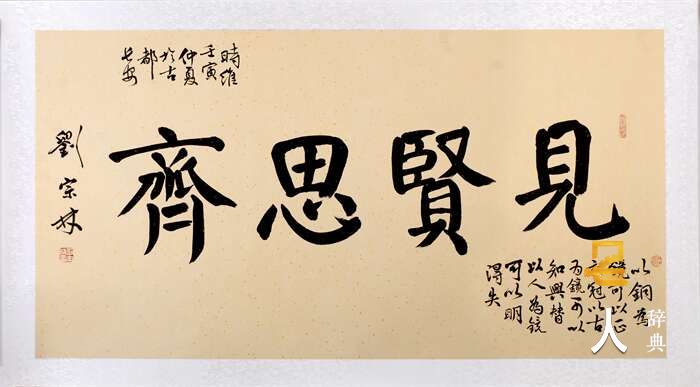 見賢思齊
以銅為
鏡可以正
衣冠以古
為鏡可以
知興替
以人為鏡
可以明
得失
時維
壬寅
仲夏
於古
都
長安
劉宗林
人
辞典